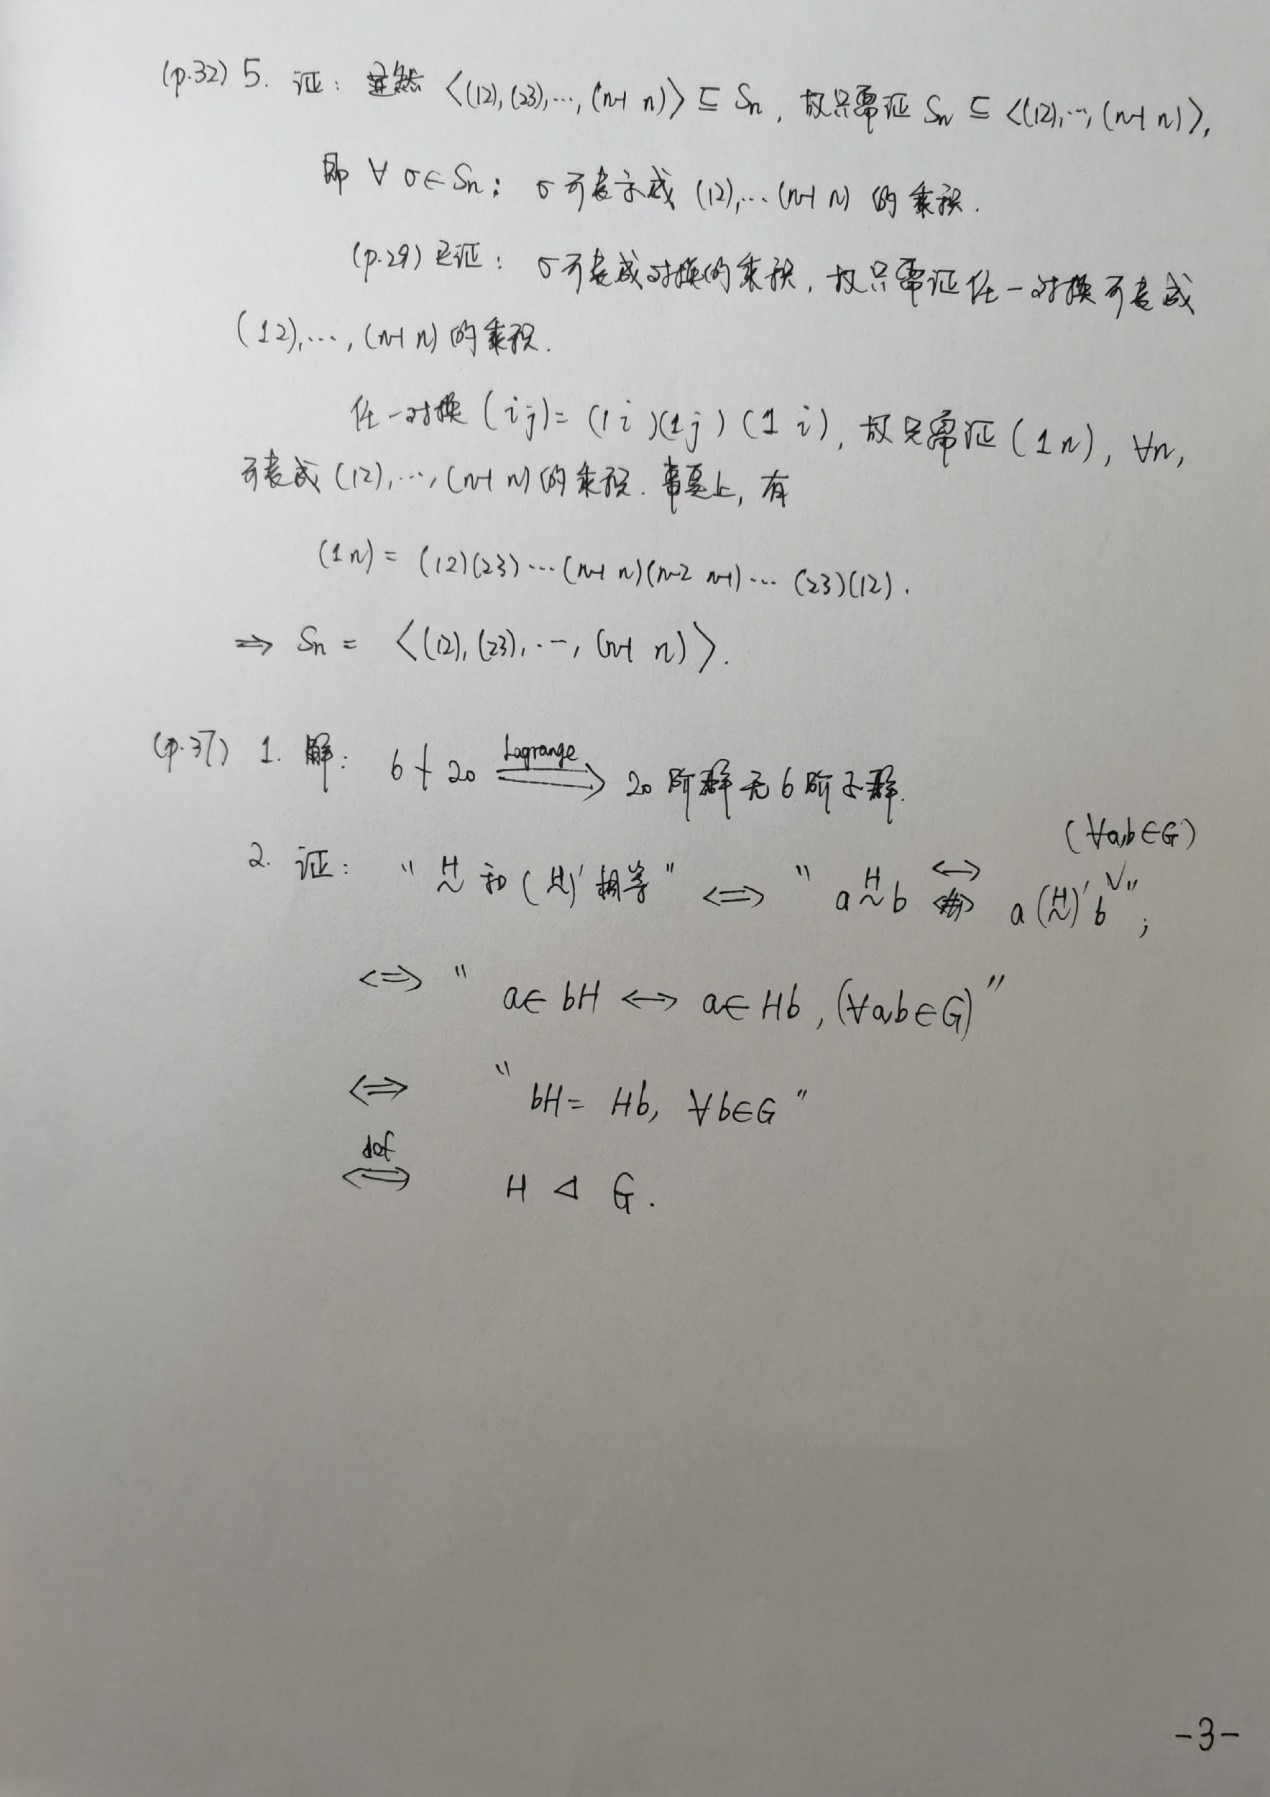 (p.32) 5. 证：显然 〈(12),(23),…,(n-1 n)〉⊆ Sn，故只需证 Sn ⊆ 〈(12),…,(n-1 n)〉,
即 ∀ σ∈Sn； σ可表示成 (12),…(n-1 n) 的乘积.
(p.29) 已证：σ可表成对换的乘积，故只需证任一对换可表成
(12),…,(n-1 n) 的乘积.
任一对换 (i j)= (1 i)(1 j)(1 i)，故只需证 (1 n), ∀n,
可表成 (12),…,(n-1 n) 的乘积. 事实上，有
(1 n) = (12)(23)…(n-1 n)(n-2 n-1)…(23)(12).
⇒ Sn = 〈(12),(23),…,(n-1 n)〉.
(p.37) 1. 解： 6∤20 ⟹(Lagrange) 20阶群无6阶子群.
(∀a,b∈G)
2. 证： "H∼ 和 (H∼)' 相等" ⟺ " a H∼ b ⟷ a (H∼)' b ";
⟺ " a∈bH ⟷ a∈Hb, (∀a,b∈G) "
⟺ " bH = Hb, ∀b∈G "
def
⟺ H ⊲ G.
-3-